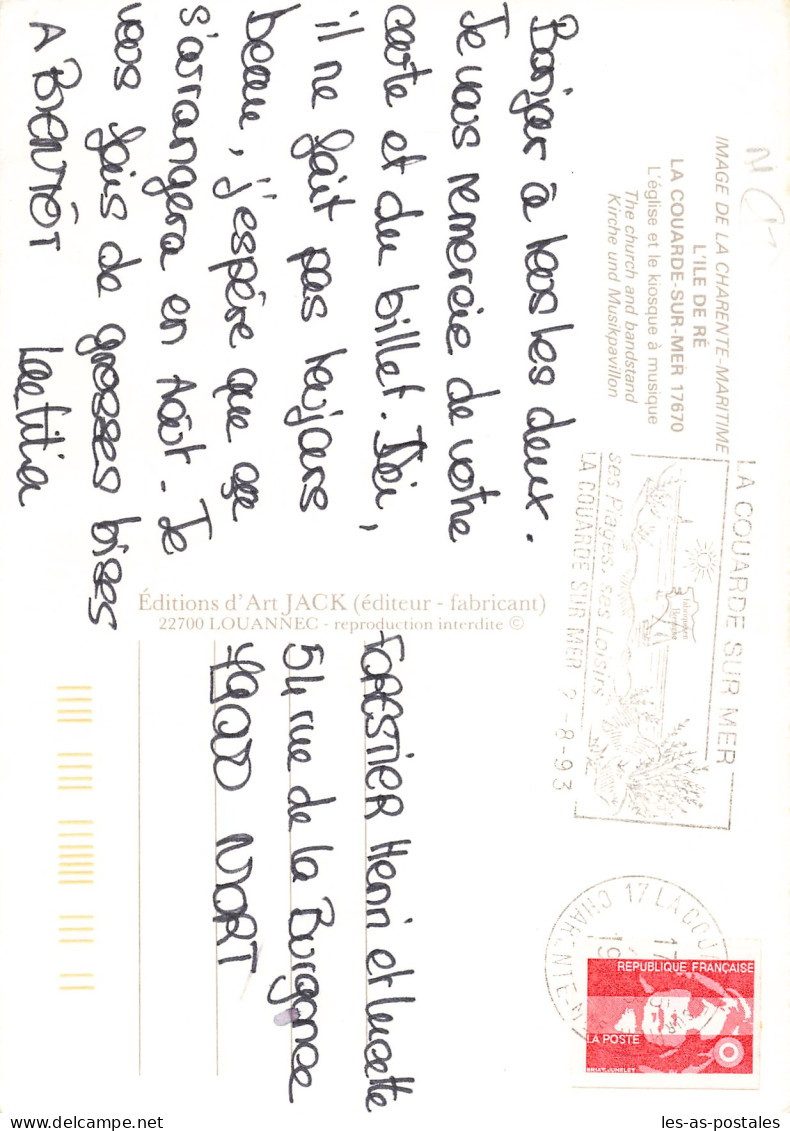 IMAGE DE LA CHARENTE-MARITIME
L'ILE DE RÉ
LA COUARDE-SUR-MER 17670
L'église et le kiosque à musique
The church and bandstand
Kirche und Musikpavillon
Bonjour à tous les deux.
Je vous remercie de votre
carte et du billet. Ici,
il ne fait pas toujours
beau, j'espère que ça
s'arrangera en Août. Je
vous fais de grosses bises
A BIENTÔT
Laetitia
Éditions d'Art JACK (éditeur - fabricant)
22700 LOUANNEC - reproduction interdite ©
LA COUARDE SUR MER
ses Plages, ses Loisirs
LA COUARDE SUR MER 2-8-93
17 LA COU
CHARENTE-M
REPUBLIQUE FRANÇAISE
LA POSTE
BRIAT-JUMELET
FORESTIER Henri et Lucette
54 rue de la Burgonce
79000 NIORT
les-as-postales